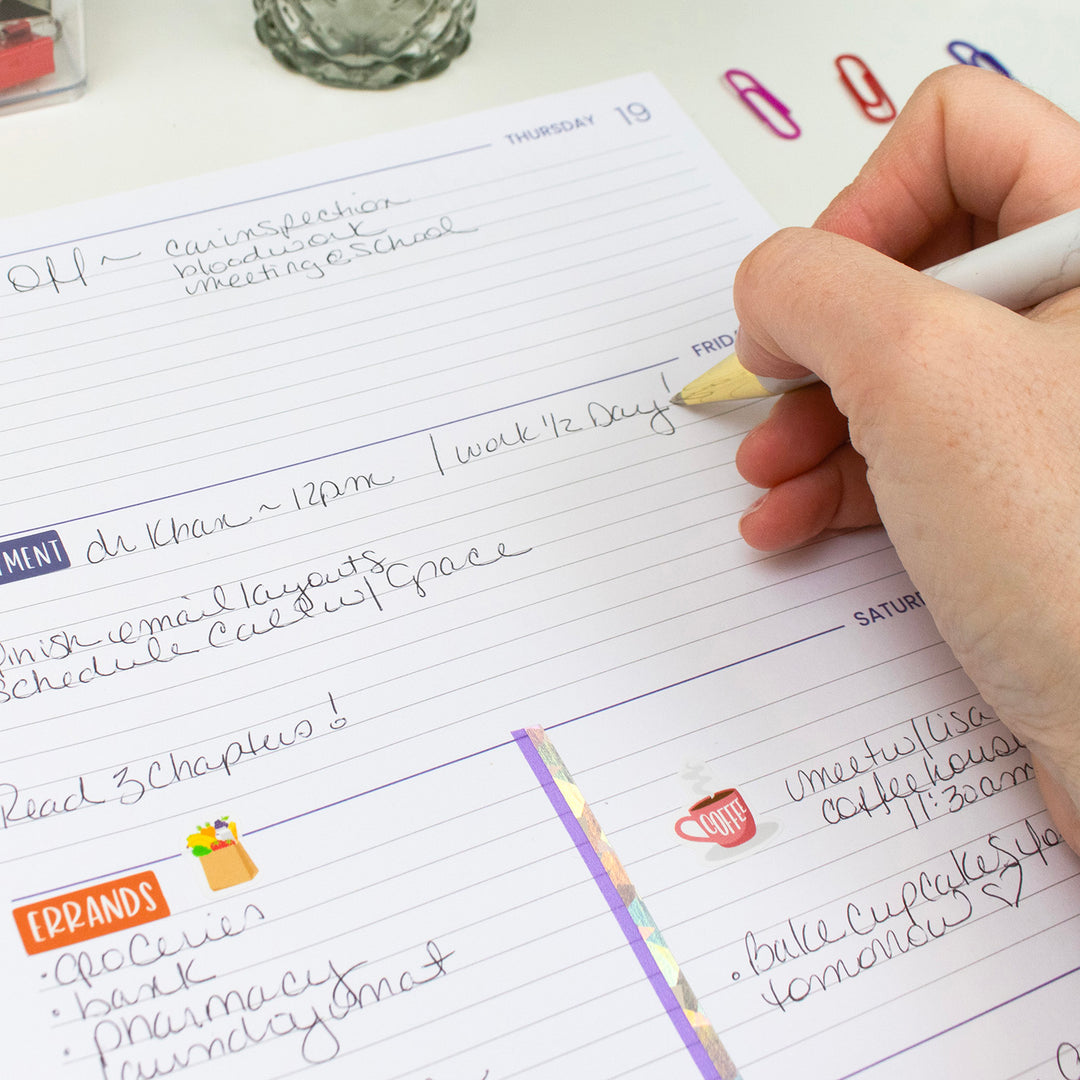 THURSDAY 19
Off ~ car inspection
bloodwork
meeting @ school
FRIDA
TMENT dr Khan ~ 12pm | work 1/2 Day!
finish email layouts
schedule call w/ Grace
Read 3 Chapters!
SATUR
ERRANDS
• groceries
• bank
• pharmacy
laundromat
COFFEE
meet w/ Lisa
coffee house
11:30am
• Bake Cupcakes
tomorrow ♡